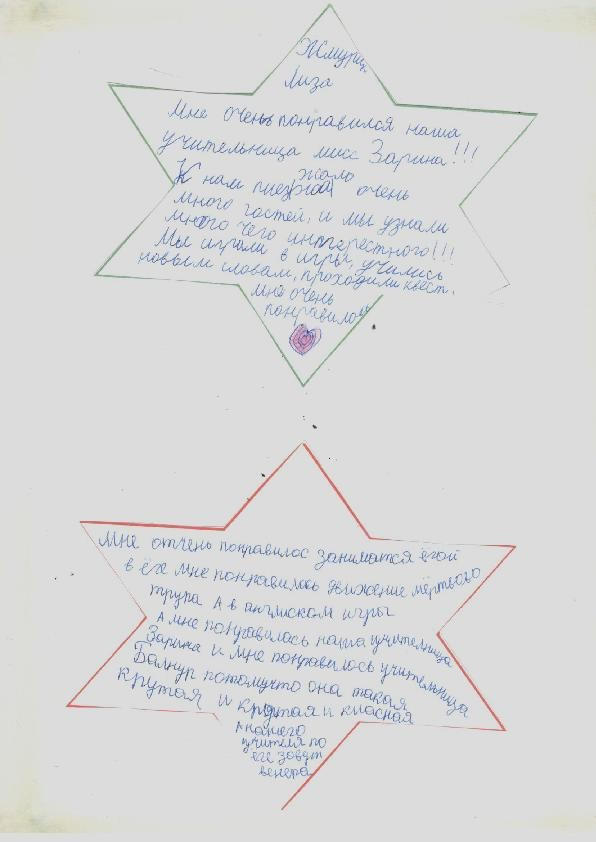 Жмурц
Лиза
Мне очень понравился наша
учительница мисс Зарина!!!
жало
К нам пиез очень
много гостей, и мы узнали
много чего интерестного!!!
Мы играли в игры, учились
новым словам, проходили квест.
Мне очень
понравилось
Мне отчень понравилос заниматся ёгой
в ёге мне понравилось движение мёртвого
трупа А в англиском игры
А мне понравилась наша учительница
Зарина и мне понравилось учительница
Балнур потомучто она такая
крутая и крутая и класная
А нашего
учителя по
ёге зовут
венера